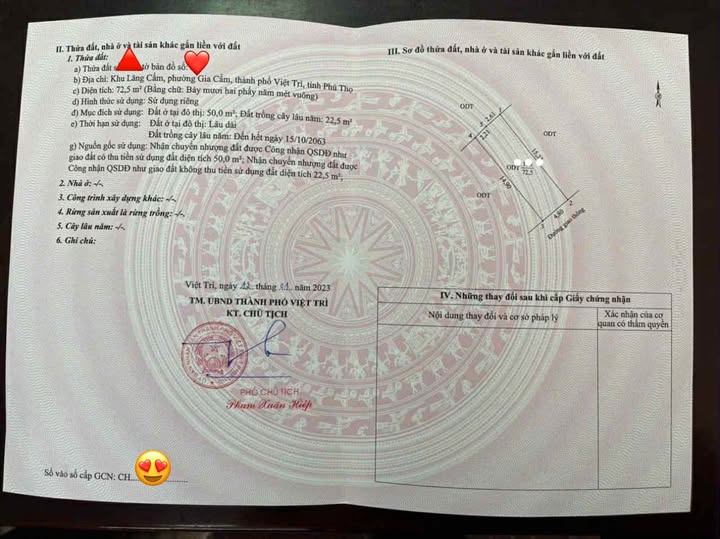 II. Thửa đất, nhà ở và tài sản khác gắn liền với đất
1. Thửa đất:
a) Thửa đất s tờ bản đồ số:
b) Địa chỉ: Khu Lăng Cẩm, phường Gia Cẩm, thành phố Việt Trì, tỉnh Phú Thọ
c) Diện tích: 72,5 m² (Bằng chữ: Bảy mươi hai phẩy năm mét vuông)
d) Hình thức sử dụng: Sử dụng riêng
đ) Mục đích sử dụng: Đất ở tại đô thị: 50,0 m²; Đất trồng cây lâu năm: 22,5 m²
e) Thời hạn sử dụng: Đất ở tại đô thị: Lâu dài
Đất trồng cây lâu năm: Đến hết ngày 15/10/2063
g) Nguồn gốc sử dụng: Nhận chuyển nhượng đất được Công nhận QSDĐ như
giao đất có thu tiền sử dụng đất diện tích 50,0 m²; Nhận chuyển nhượng đất được
Công nhận QSDĐ như giao đất không thu tiền sử dụng đất diện tích 22,5 m²;
2. Nhà ở: -/-
3. Công trình xây dựng khác: -/-
4. Rừng sản xuất là rừng trồng: -/-
5. Cây lâu năm: -/-
6. Ghi chú:
Việt Trì, ngày tháng năm 2023
TM. UBND THÀNH PHỐ VIỆT TRÌ
KT. CHỦ TỊCH
PHÓ CHỦ TỊCH
Phạm Xuân Hiệp
Số vào sổ cấp GCN: CH
III. Sơ đồ thửa đất, nhà ở và tài sản khác gắn liền với đất
ODT
ODT
ODT
ODT
72,5
2,61
2,21
14,90
4,80
1
2
3
4
5
Đường giao thông
IV. Những thay đổi sau khi cấp Giấy chứng nhận
Nội dung thay đổi và cơ sở pháp lý
Xác nhận của cơ
quan có thẩm quyền